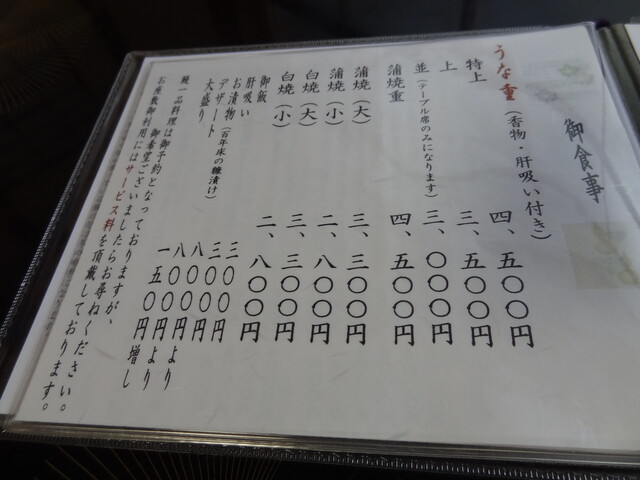 御食事
うな重(香物・肝吸い付き)
特上 四、五〇〇円
上 三、五〇〇円
並(テーブル席のみになります) 三、〇〇〇円
蒲焼重 四、五〇〇円
蒲焼(大) 三、三〇〇円
蒲焼(小) 二、八〇〇円
白焼(大) 三、三〇〇円
白焼(小) 二、八〇〇円
御飯 三〇〇円
肝吸い 三〇〇円
お漬物(百年床の糠漬け) 八〇〇円より
デザート 八〇〇円より
大盛り 一五〇円増し
鰻一品料理は御予約となっておりますが、
御希望ございましたらお尋ねください。
お座敷御利用にはサービス料を頂戴しております。